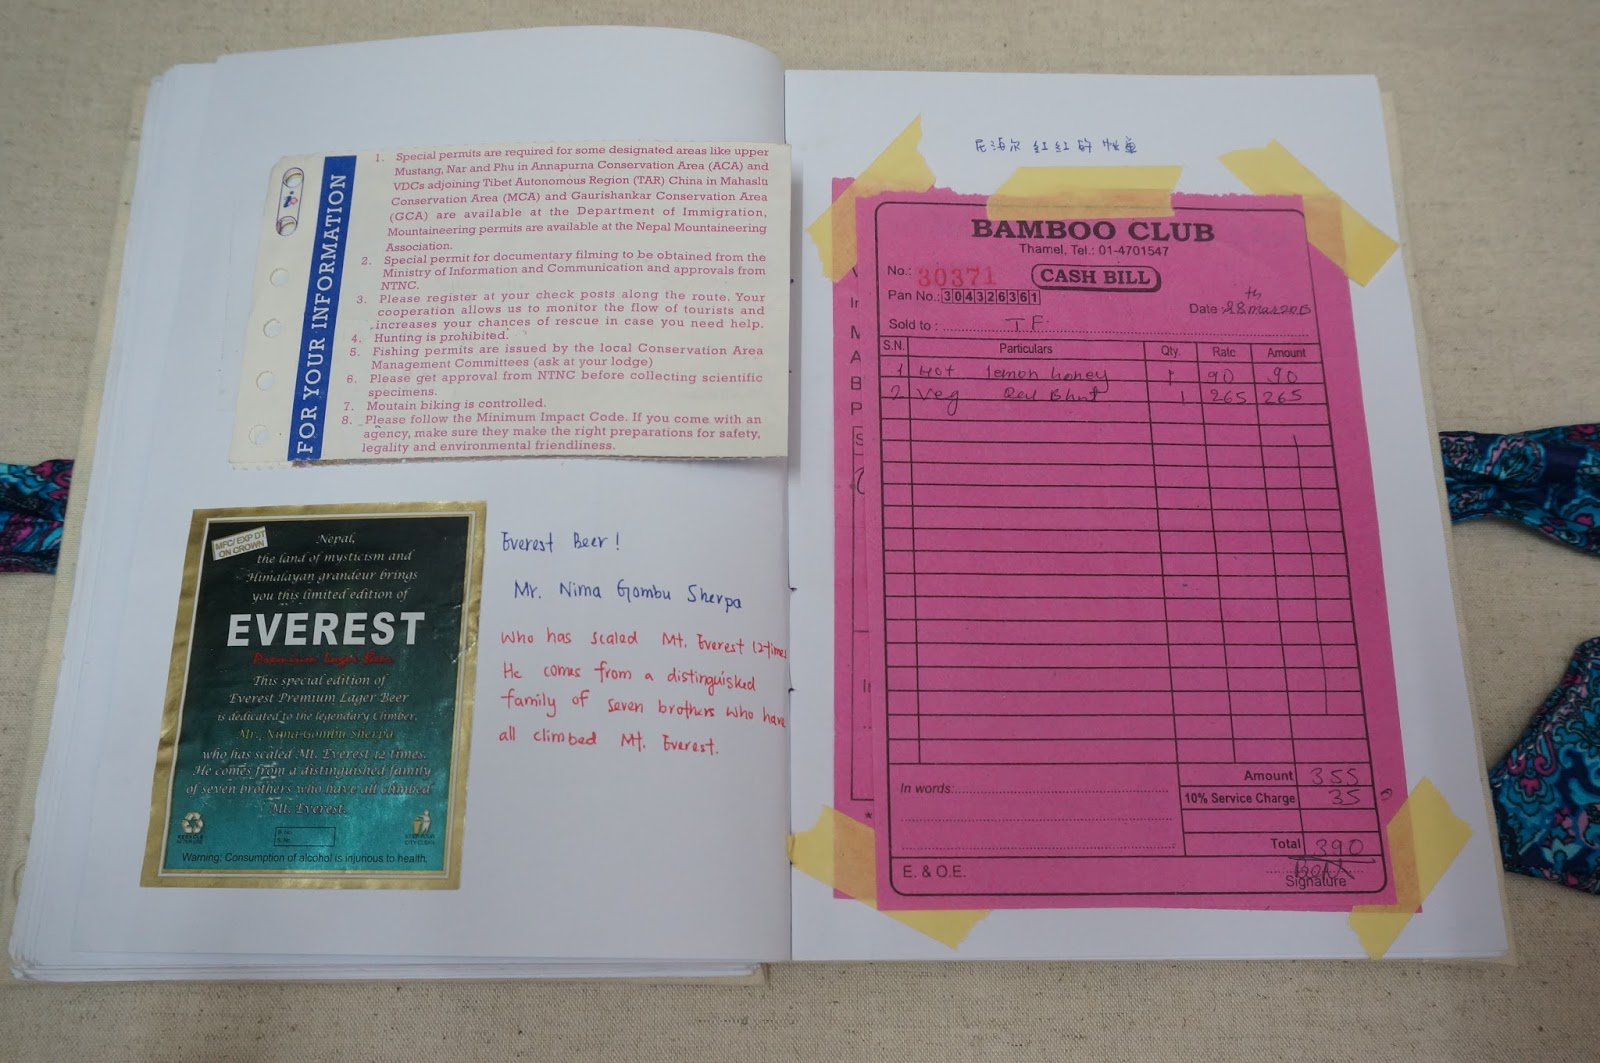 FOR YOUR INFORMATION
1. Special permits are required for some designated areas like upper
Mustang, Nar and Phu in Annapurna Conservation Area (ACA) and
VDCs adjoining Tibet Autonomous Region (TAR) China in Mahaslu
Conservation Area (MCA) and Gaurishankar Conservation Area
(GCA) are available at the Department of Immigration,
Mountaineering permits are available at the Nepal Mountaineering
Association.
2. Special permit for documentary filming to be obtained from the
Ministry of Information and Communication and approvals from
NTNC.
3. Please register at your check posts along the route. Your
cooperation allows us to monitor the flow of tourists and
increases your chances of rescue in case you need help.
4. Hunting is prohibited.
5. Fishing permits are issued by the local Conservation Area
Management Committees (ask at your lodge)
6. Please get approval from NTNC before collecting scientific
specimens.
7. Moutain biking is controlled.
8. Please follow the Minimum Impact Code. If you come with an
agency, make sure they make the right preparations for safety,
legality and environmental friendliness.
MFG/ EXP DT
ON CROWN
Nepal,
the land of mysticism and
Himalayan grandeur brings
you this limited edition of
EVEREST
Premium Lager Beer
This special edition of
Everest Premium Lager Beer
is dedicated to the legendary Climber,
Mr. Nima Gombu Sherpa
who has scaled Mt. Everest 12 times.
He comes from a distinguished family
of seven brothers who have all climbed
Mt. Everest.
B. No.
Warning: Consumption of alcohol is injurious to health.
Everest Beer!
Mr. Nima Gombu Sherpa
Who has scaled Mt. Everest 12 times
He comes from a distinguished
family of seven brothers who have
all climbed Mt. Everest.
尼泊尔 红红的 帐单
BAMBOO CLUB
Thamel, Tel.: 01-4701547
No.: 30371 CASH BILL
Pan No.: 304326361
Date
Sold to : T F.
S.N. Particulars Qty. Rate Amount
1 Hot lemon honey 1 90 90
2 Veg 1 265 265
Amount 355
10% Service Charge 35
In words:
Total 390
E. & O.E. Signature